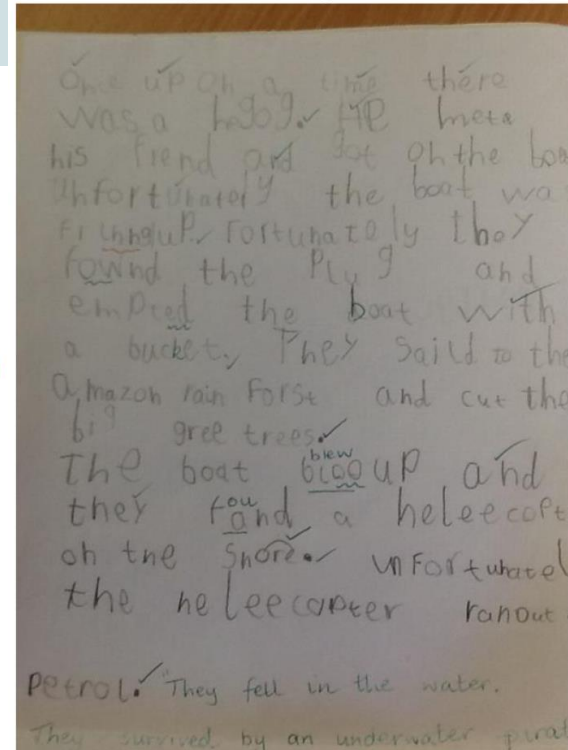 once up on a time there
was a hogog. HE meta
his fiend and got on the boa
unfortunately the boat wa
finnguP. Fortunately they
fownd the Plug and
empted the boat with
a bucket, They saild to the
Amazon rain Forst and cut the
big gree trees.
The boat blew bloo up and
they fou fand a heleecopt
on the shore. unfortunatel
the heleecopter ranout
petrol. They fell in the water.
They survived by an underwater pirat